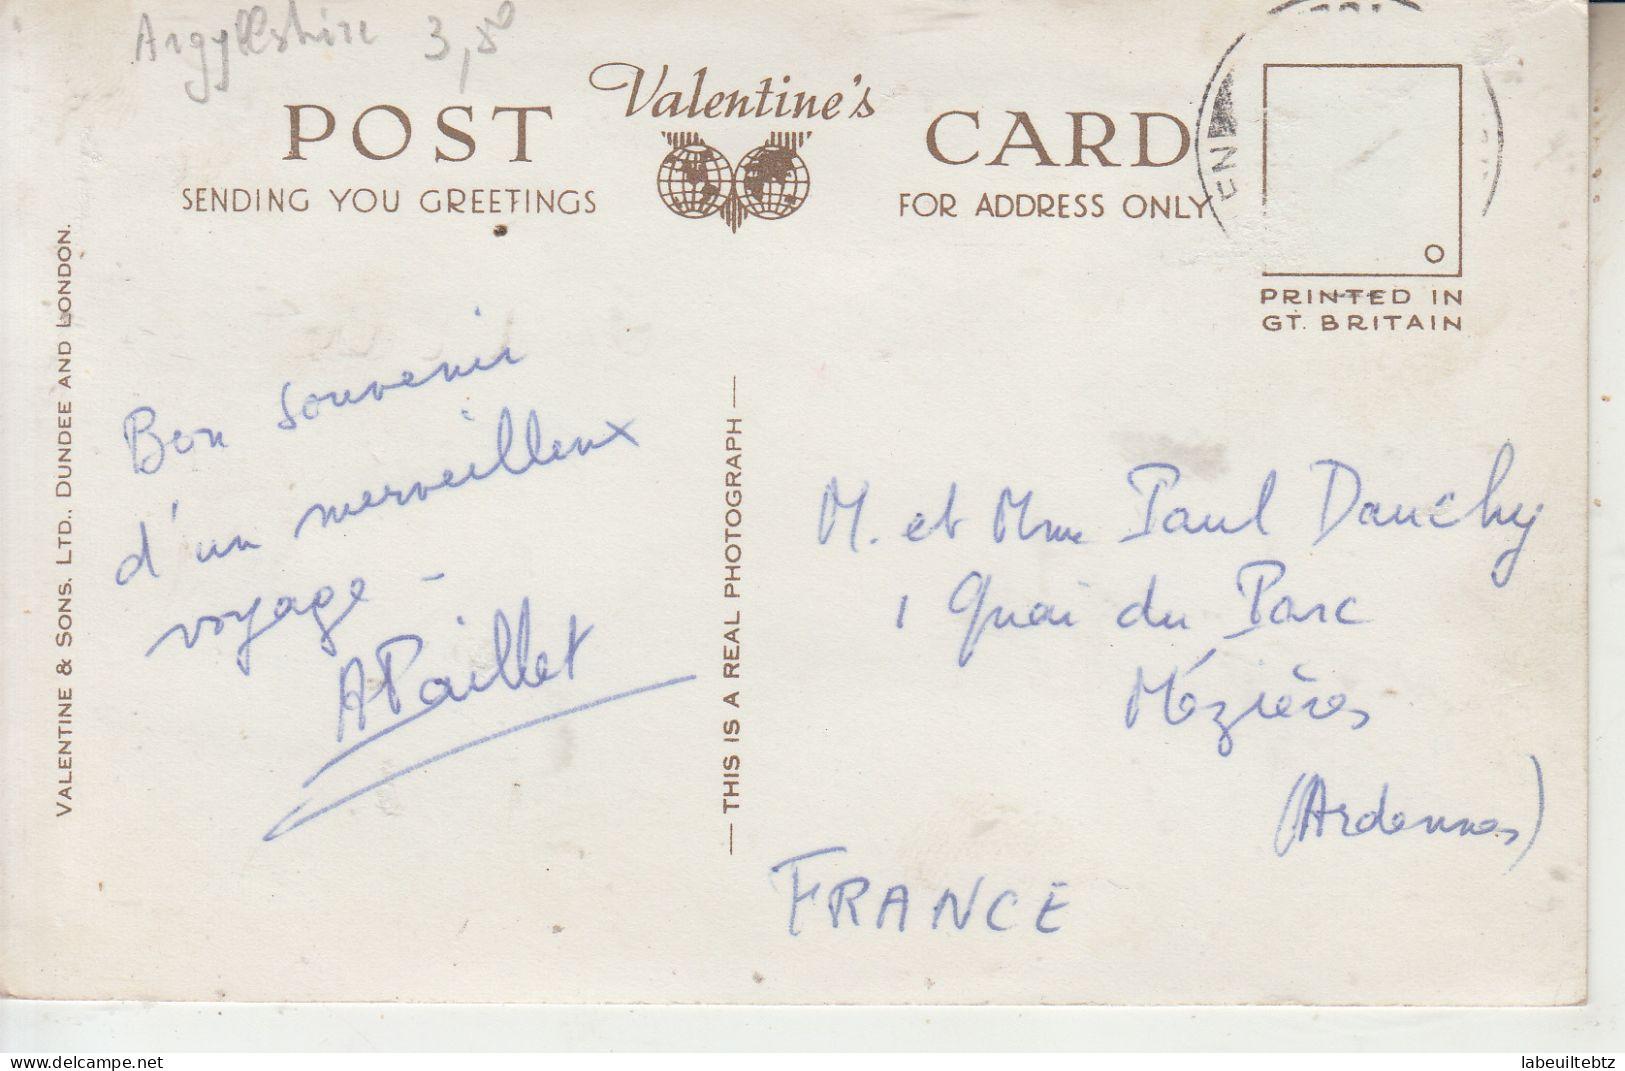 Argyllshire 3,50
Valentine's
POST CARD
SENDING YOU GREETINGS
FOR ADDRESS ONLY
PRINTED IN
GT. BRITAIN
VALENTINE & SONS. LTD., DUNDEE AND LONDON.
Bon souvenir
d'un merveilleux
voyage -
APaillet
— THIS IS A REAL PHOTOGRAPH —
M. et Mme Paul Dauchy
1 Quai du Parc
Mézières
(Ardennes)
FRANCE
www.delcampe.net
labeuiltebtz